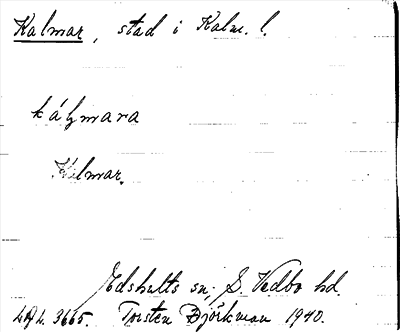 Kalmar, stad i Kalm. l.
kálmara
Kalmar.
Edshults sn, S. Vedbo hd.
LAL. 3665. Torsten Björkman 1940.